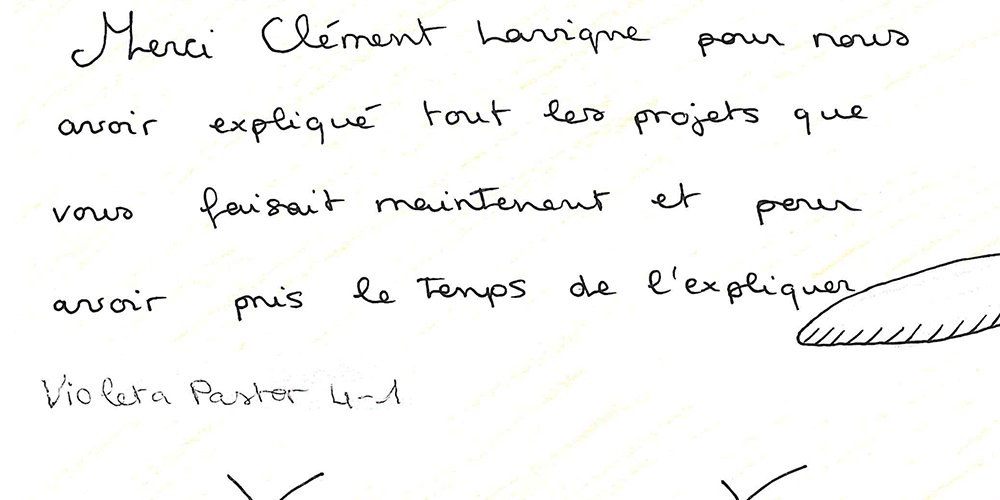 Merci Clément Lavigne pour nous
avoir expliqué tout les projets que
vous faisait maintenant et pour
avoir pris le temps de l'expliquer
Violeta Pastor 4-1